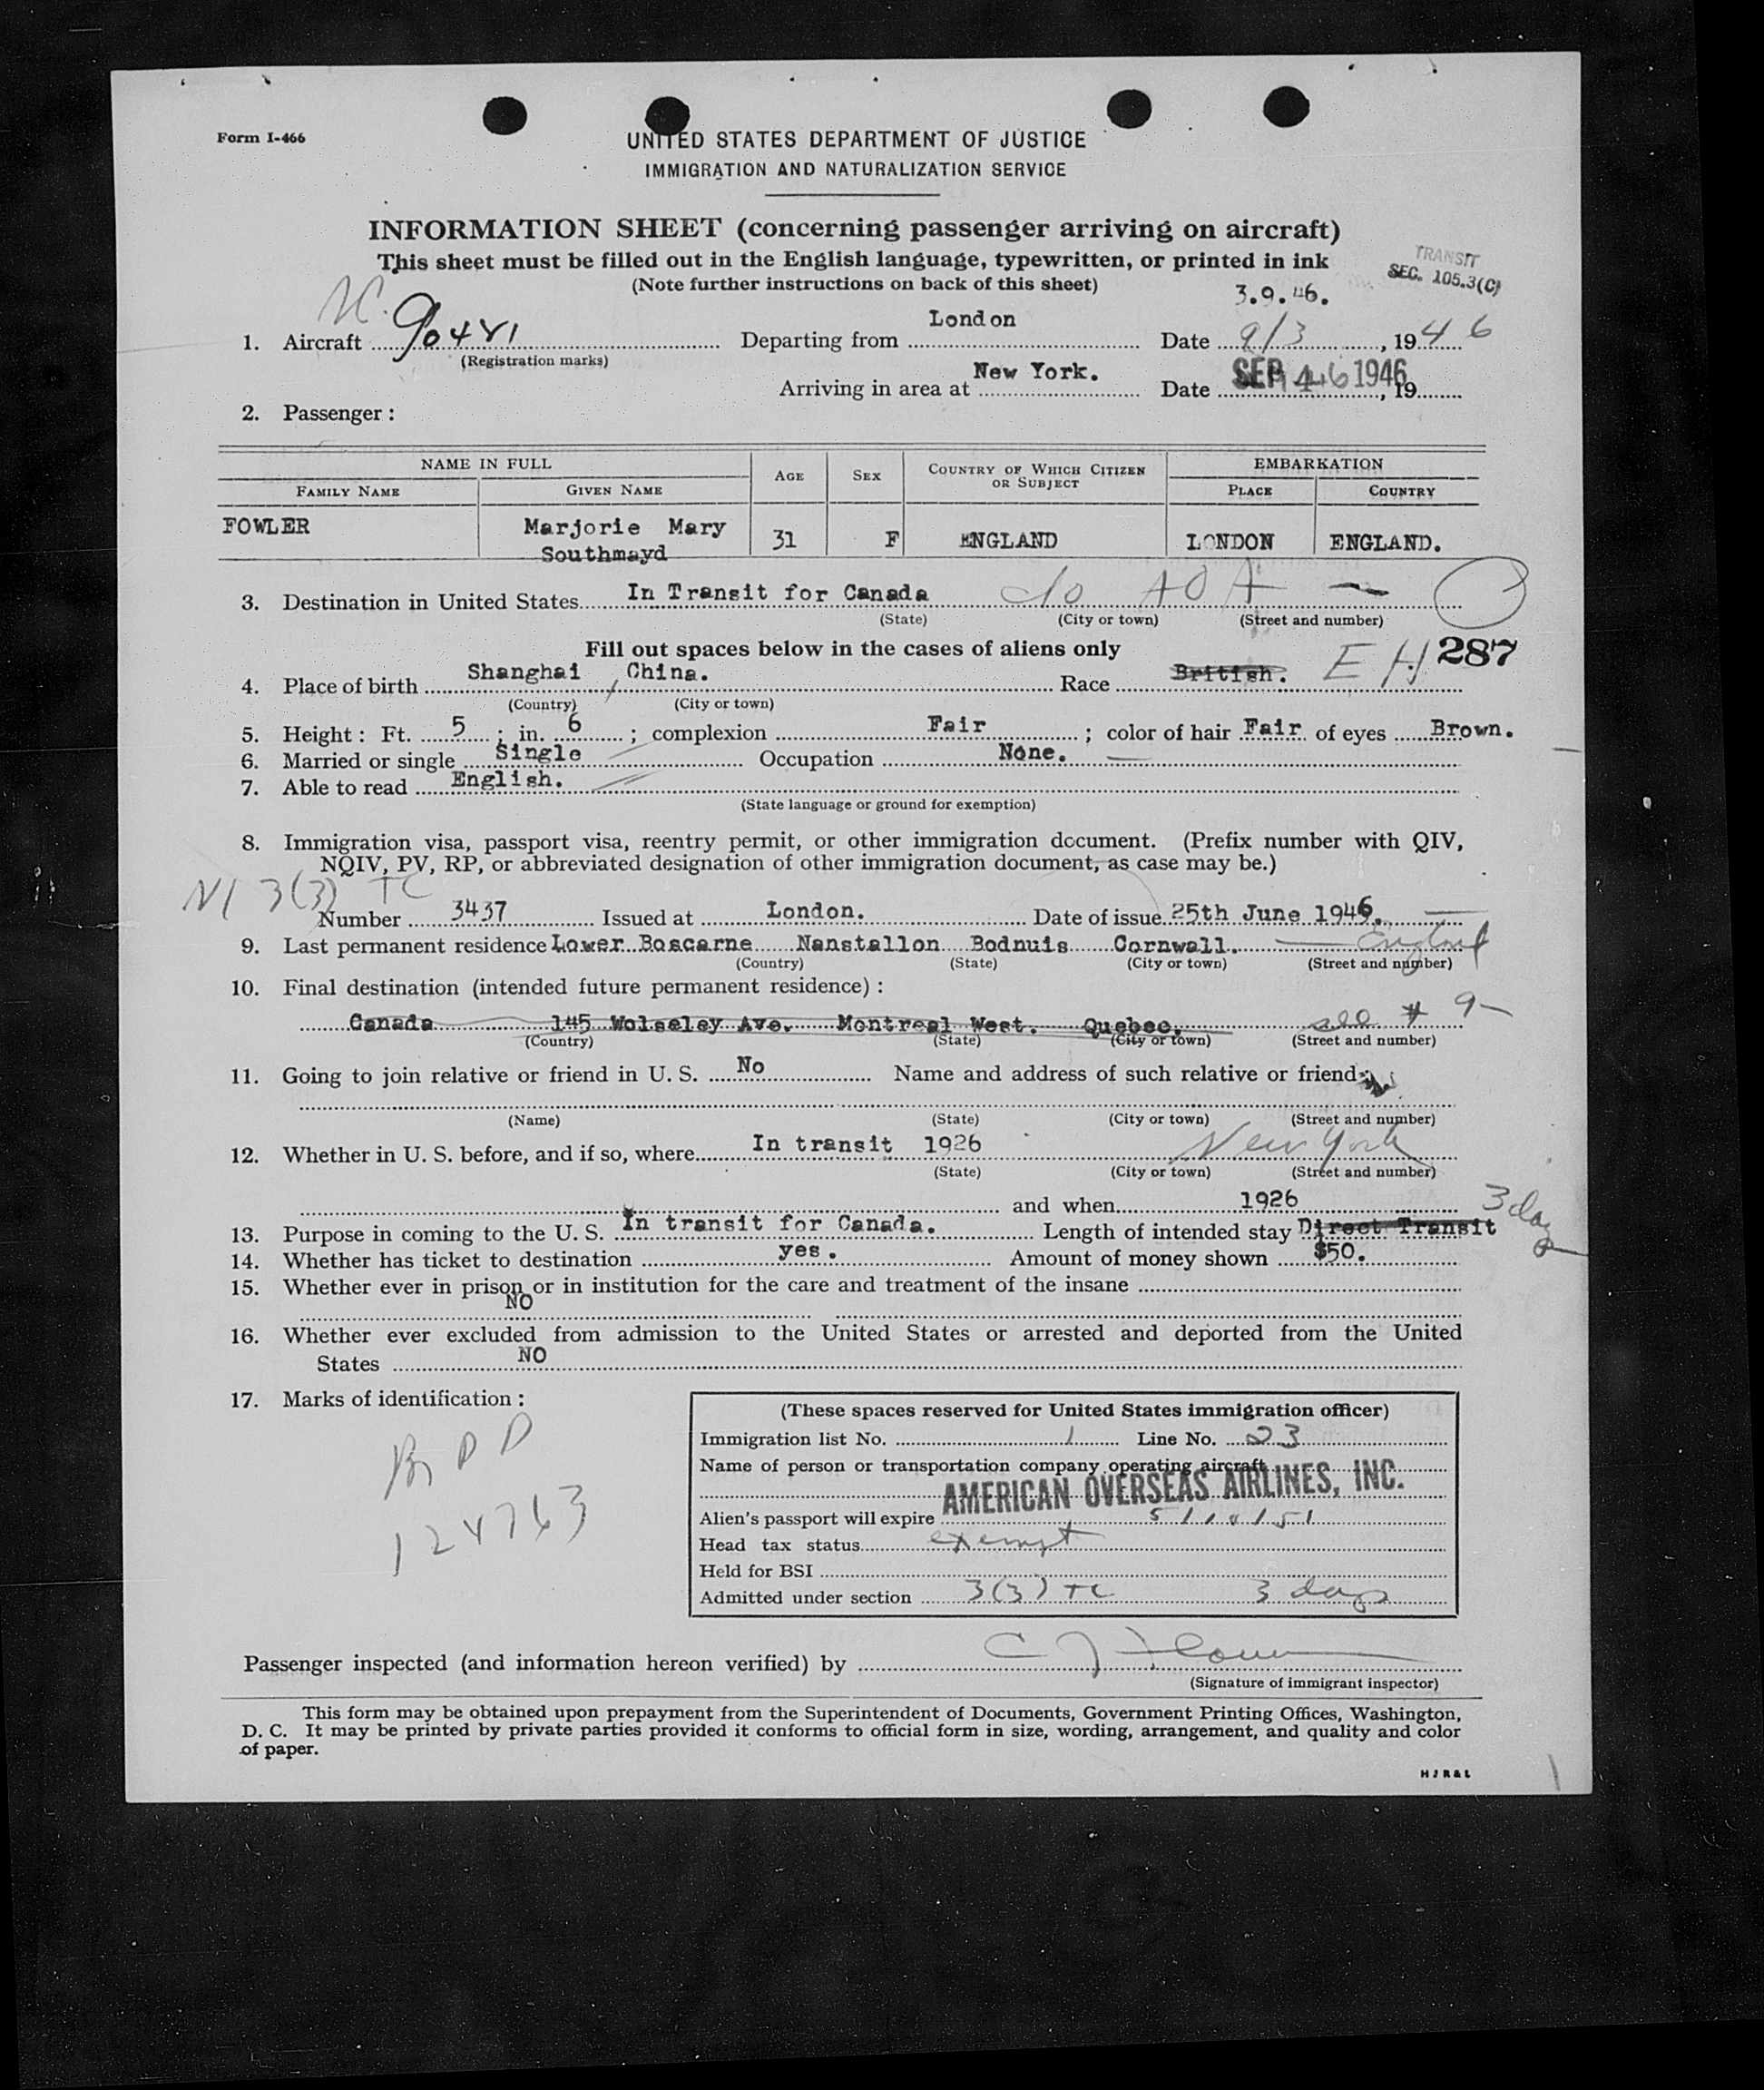 Form I-466
UNITED STATES DEPARTMENT OF JUSTICE
IMMIGRATION AND NATURALIZATION SERVICE
INFORMATION SHEET (concerning passenger arriving on aircraft)
This sheet must be filled out in the English language, typewritten, or printed in ink
(Note further instructions on back of this sheet)
TRANSIT
SEC. 105.3(C)
3.9.46.
1. Aircraft NC. 90441 Departing from London Date 9/3, 1946
(Registration marks)
Arriving in area at New York. Date SEP 4 1946, 19
2. Passenger :
NAME IN FULL AGE SEX COUNTRY OF WHICH CITIZEN OR SUBJECT EMBARKATION
FAMILY NAME GIVEN NAME PLACE COUNTRY
FOWLER Marjorie Mary Southmayd 31 F ENGLAND LONDON ENGLAND.
3. Destination in United States In Transit for Canada c/o AOA
(State) (City or town) (Street and number)
Fill out spaces below in the cases of aliens only
EH 287
4. Place of birth Shanghai, China. Race British.
(Country) (City or town)
5. Height : Ft. 5 ; in. 6 ; complexion Fair ; color of hair Fair of eyes Brown.
6. Married or single Single Occupation None.
7. Able to read English.
(State language or ground for exemption)
8. Immigration visa, passport visa, reentry permit, or other immigration document. (Prefix number with QIV,
NQIV, PV, RP, or abbreviated designation of other immigration document, as case may be.)
3(3) TC
Number 3437 Issued at London. Date of issue 25th June 1946.
9. Last permanent residence Lower Boscarne Nanstallon Bodnuis Cornwall. England
(Country) (State) (City or town) (Street and number)
10. Final destination (intended future permanent residence) :
Canada 145 Wolseley Ave. Montreal West. Quebec. see # 9
(Country) (State) (City or town) (Street and number)
11. Going to join relative or friend in U. S. No Name and address of such relative or friend:
(Name) (State) (City or town) (Street and number)
12. Whether in U. S. before, and if so, where In transit 1926 New York
(State) (City or town) (Street and number)
and when 1926
13. Purpose in coming to the U. S. In transit for Canada. Length of intended stay Direct Transit 3 days
14. Whether has ticket to destination yes. Amount of money shown $50.
15. Whether ever in prison or in institution for the care and treatment of the insane
NO
16. Whether ever excluded from admission to the United States or arrested and deported from the United
States NO
17. Marks of identification :
124763
(These spaces reserved for United States immigration officer)
Immigration list No. 1 Line No. 23
Name of person or transportation company operating aircraft
AMERICAN OVERSEAS AIRLINES, INC.
Alien's passport will expire
Head tax status exempt
Held for BSI
Admitted under section 3(3) TC 3 days
Passenger inspected (and information hereon verified) by
(Signature of immigrant inspector)
This form may be obtained upon prepayment from the Superintendent of Documents, Government Printing Offices, Washington,
D. C. It may be printed by private parties provided it conforms to official form in size, wording, arrangement, and quality and color
of paper.
H J R & L